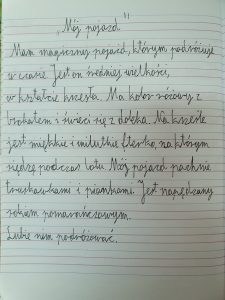 „Mój pojazd"
Mam magiczny pojazd, którym podróżuję
w czasie. Jest on różniej wielkości,
w kształcie krzesła. Ma kolor różowy z
brokatem i świeci się z daleka. Na krześle
jest miękkie i milutkie fterko, na którym
siedzę podczas lotu. Mój pojazd pachnie
truskawkami i piankami. Jest napędzany
sokiem pomarańczowym.
Lubię nim podróżować.